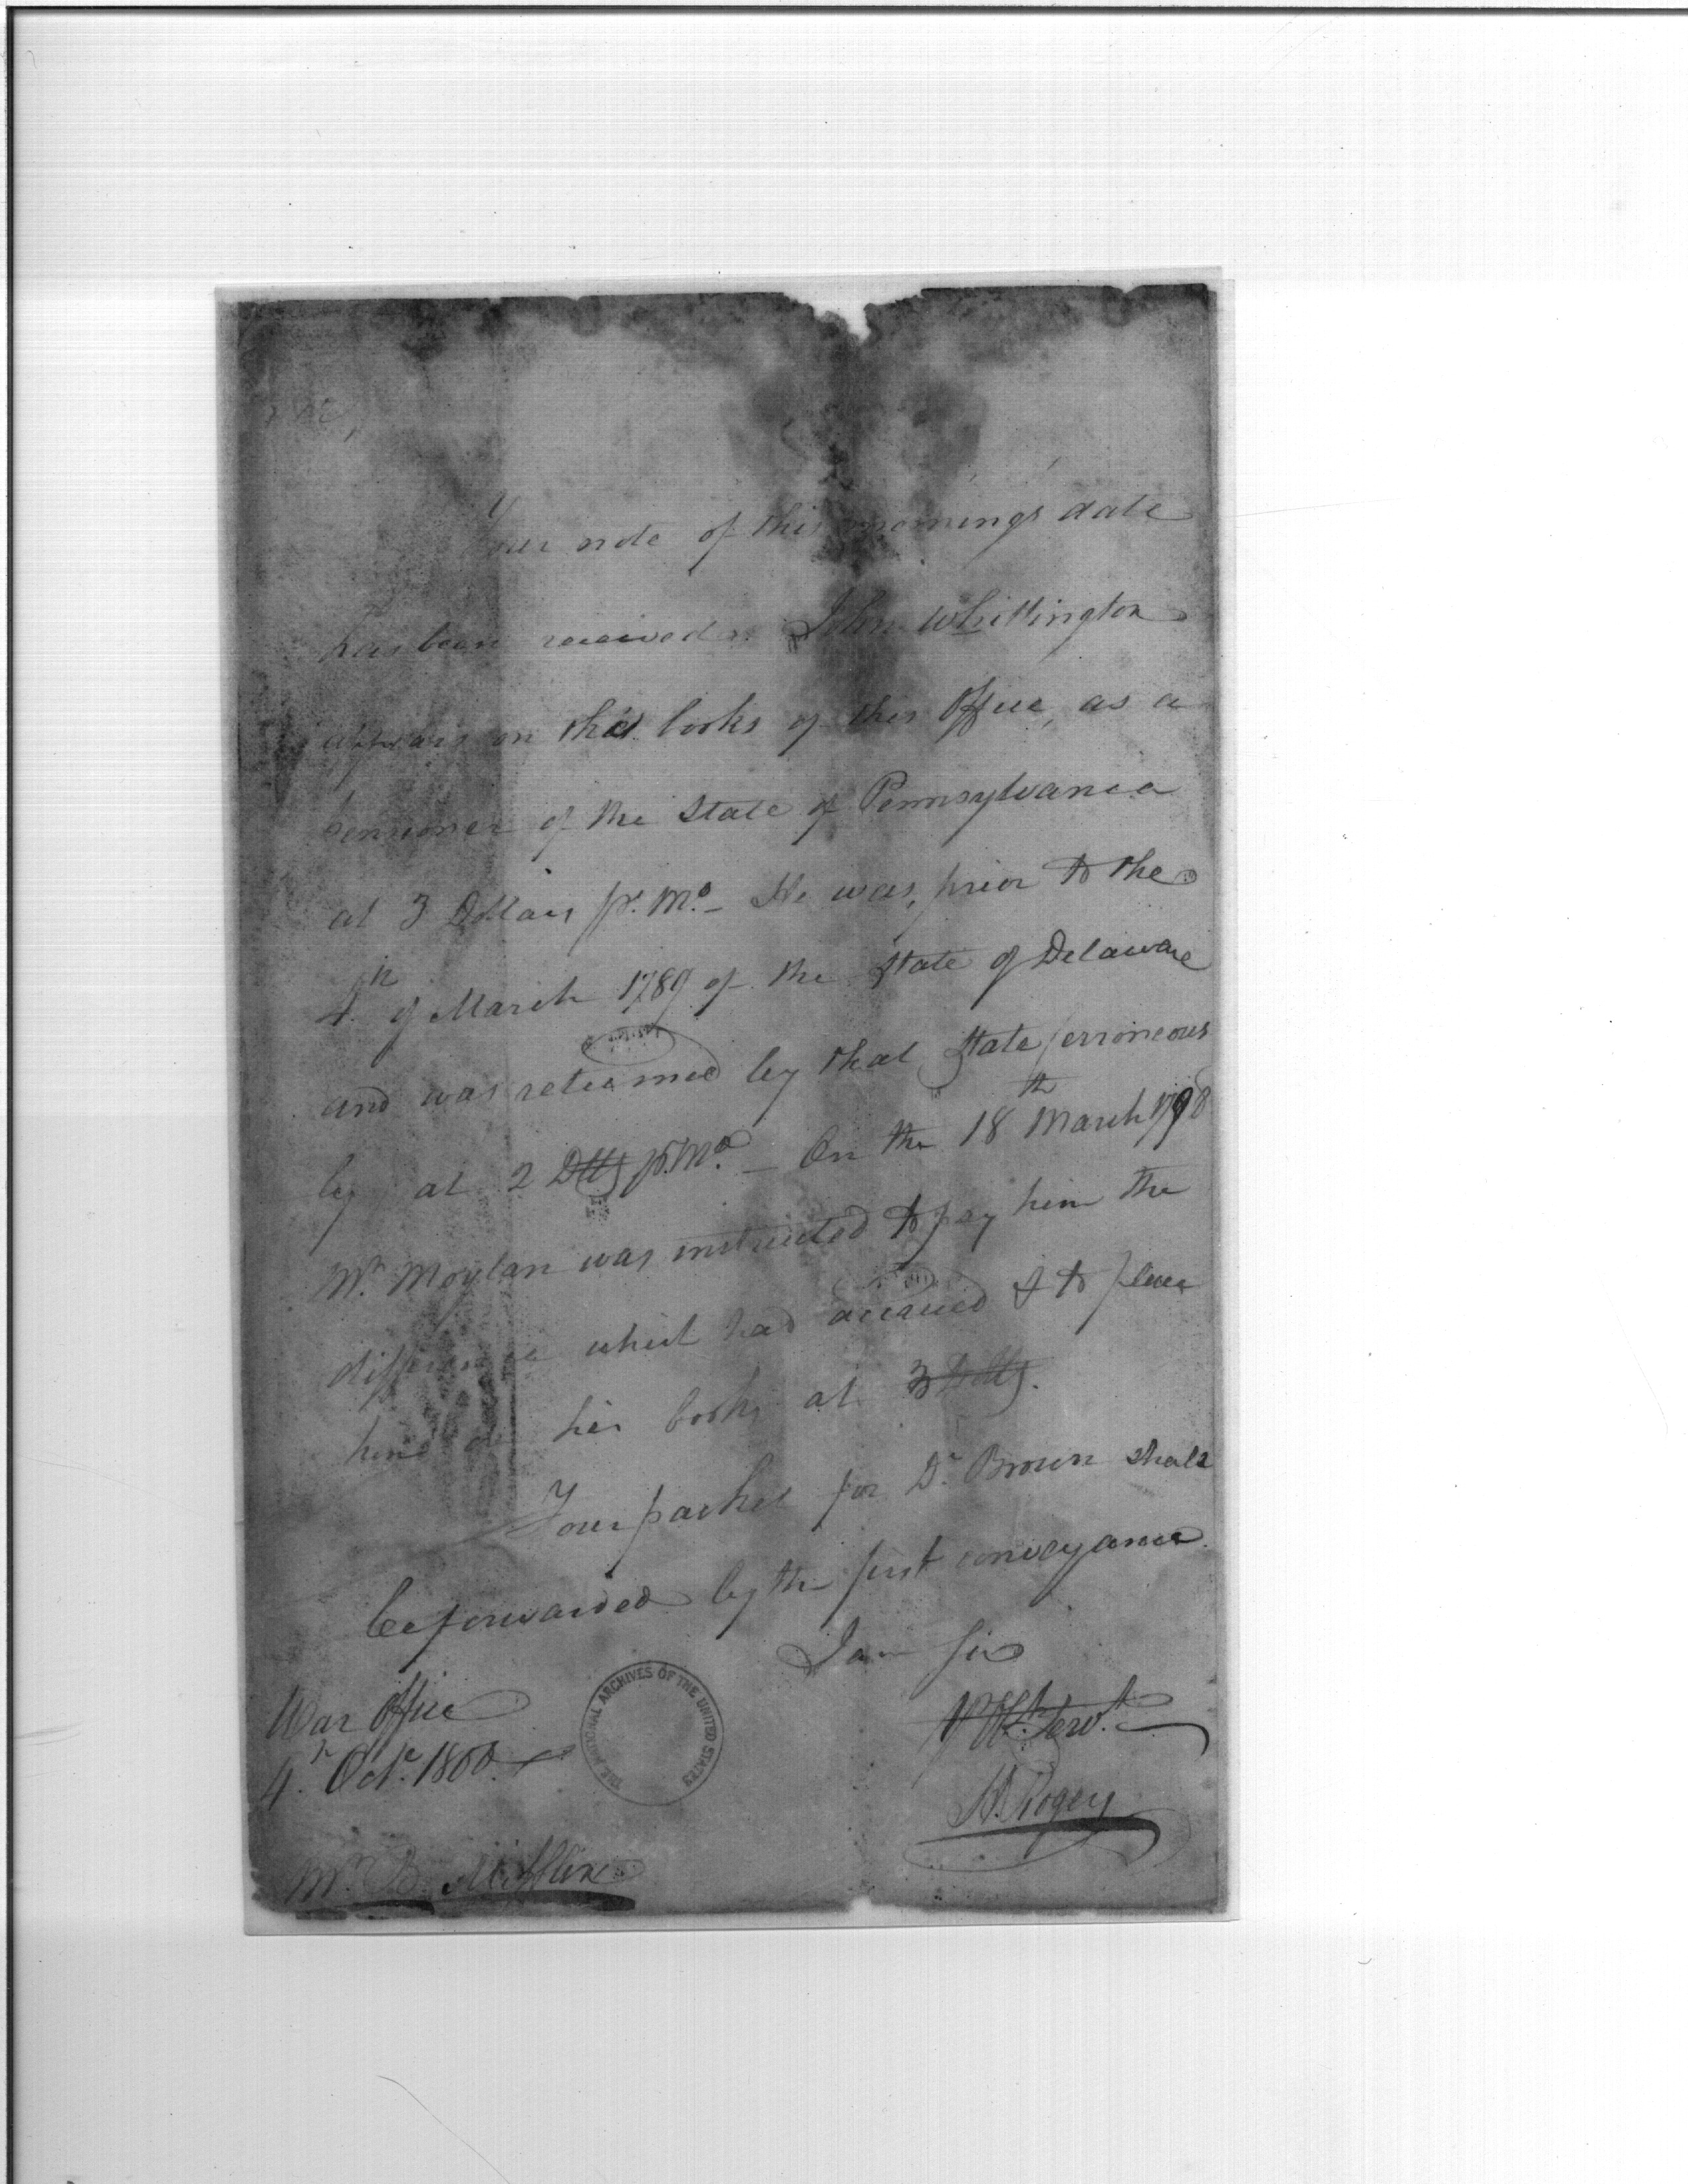 Your note of this mornings date
has been received. John Whittington
appears on the books of this Office, as a
pensioner of the State of Pennsylvania
at 3 Dollars pr. Mo. – He was, prior to the
4th of March 1789 of the State of Delaware
and was returned by that State erroneous
ly at 2 Dlls pr. Mo. – On the 18th March 1798
Mr. Moylan was instructed to pay him the
difference which had accrued & to place
him on his books at 3 Dlls.
Your packet for Dr. Brown shall
be forwarded by the first conveyance.
I am Sir
Servt.
War Office
4th Octr. 1800.
THE NATIONAL ARCHIVES OF THE UNITED STATES
Mr. B. Mifflin